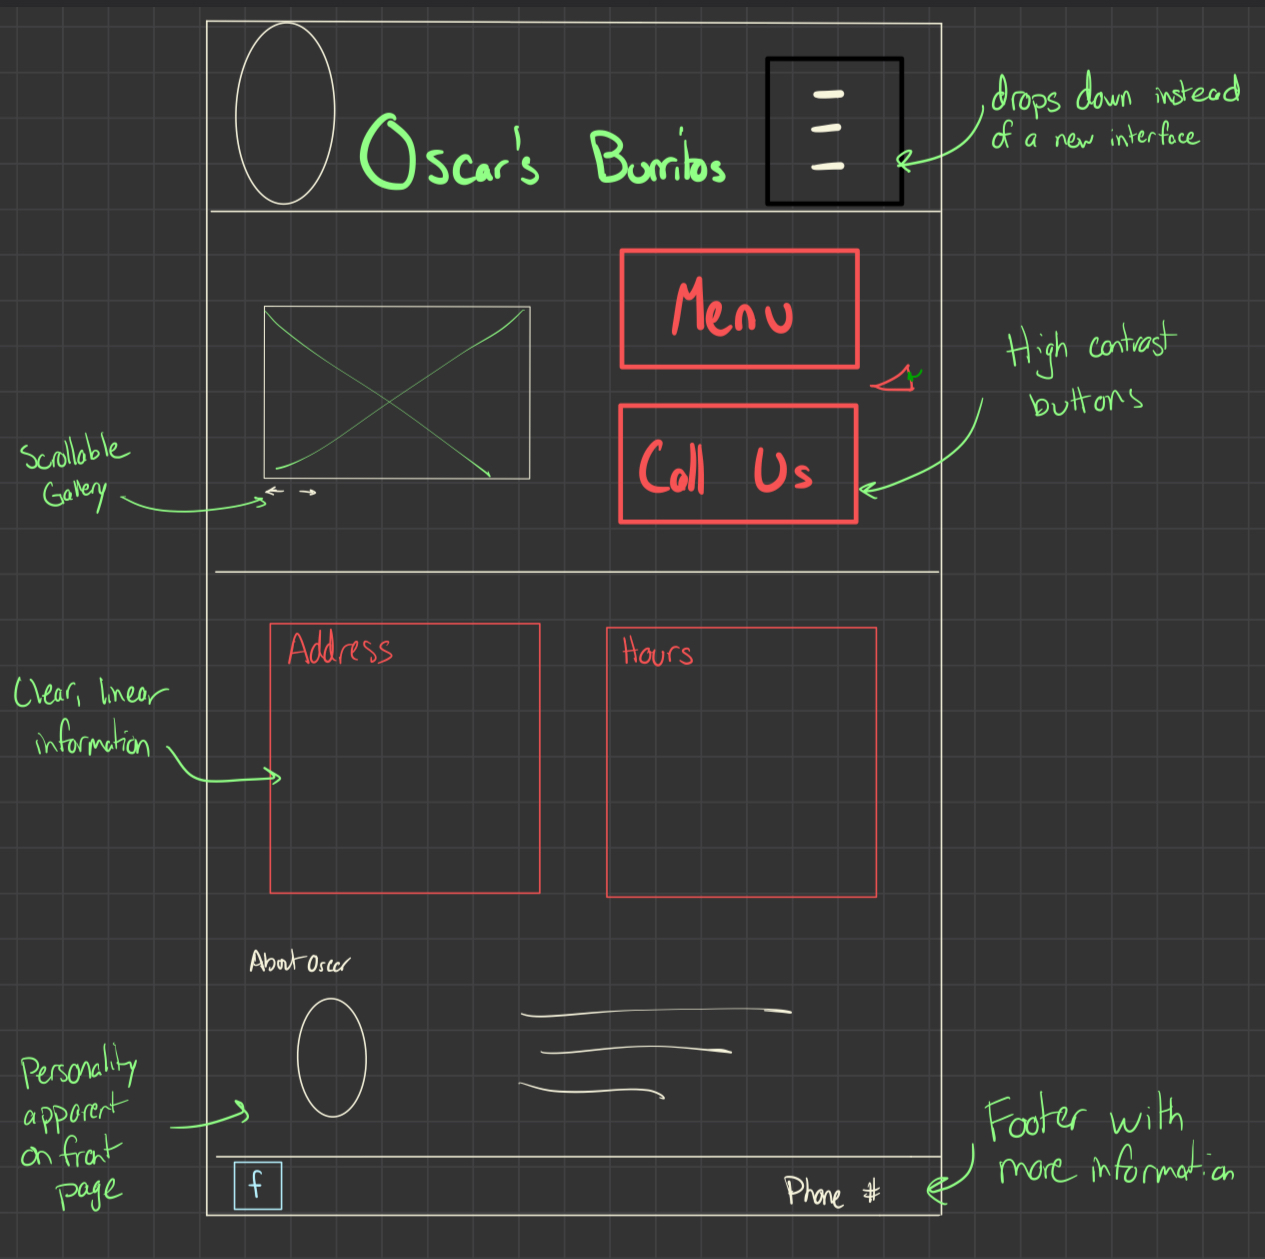 Oscar's Burritos
drops down instead
of a new interface
Menu
High contrast
buttons
Call Us
Scrollable
Gallery
Address
Hours
Clear, linear
information
About Oscar
Personality
apparent
on front
page
Footer with
more information
f
Phone #